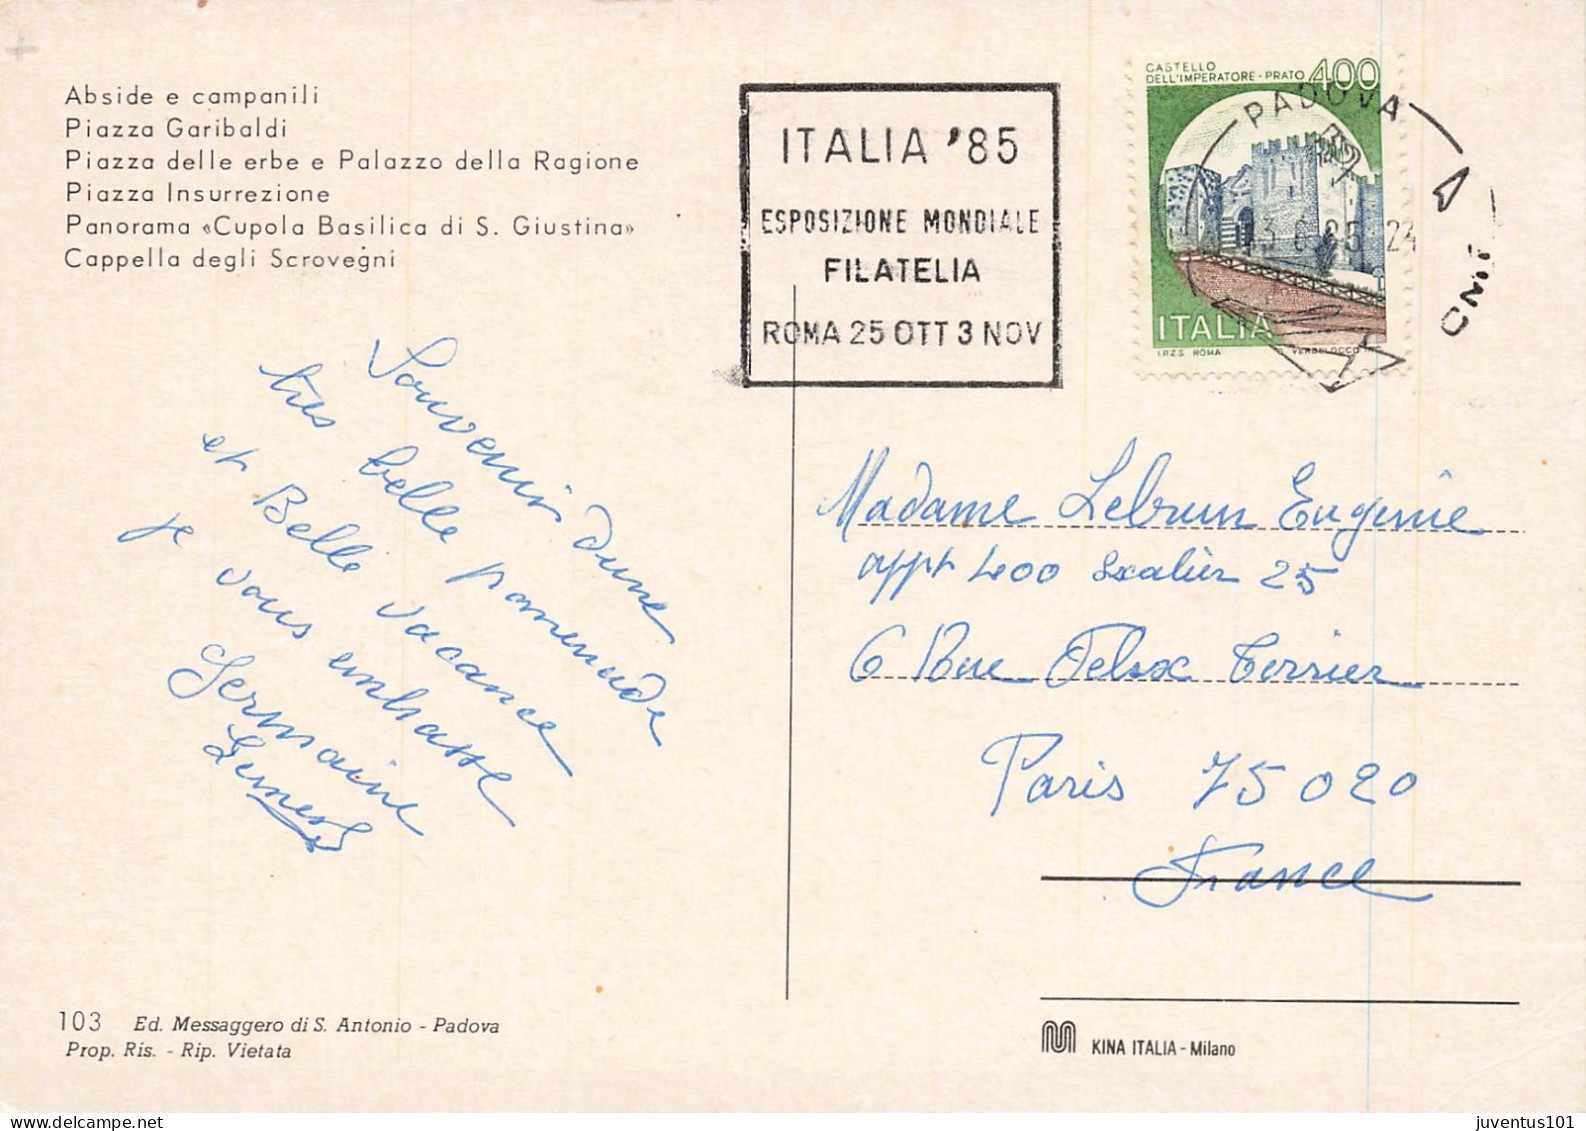 Abside e campanili
Piazza Garibaldi
Piazza delle erbe e Palazzo della Ragione
Piazza Insurrezione
Panorama «Cupola Basilica di S. Giustina»
Cappella degli Scrovegni
ITALIA '85
ESPOSIZIONE MONDIALE
FILATELIA
ROMA 25 OTT 3 NOV
CASTELLO
DELL'IMPERATORE - PRATO 400
ITALIA
I.P.Z.S. ROMA
PADOVA
Souvenir dune
très belle promenade
et Belle vacance
je vous embrasse
Germaine
Madame Lebrun Eugenie
appt 400 Escalier 25
6 Rue Felix Terrier
Paris 75020
France
103 Ed. Messaggero di S. Antonio - Padova
Prop. Ris. - Rip. Vietata
KINA ITALIA - Milano
juventus101